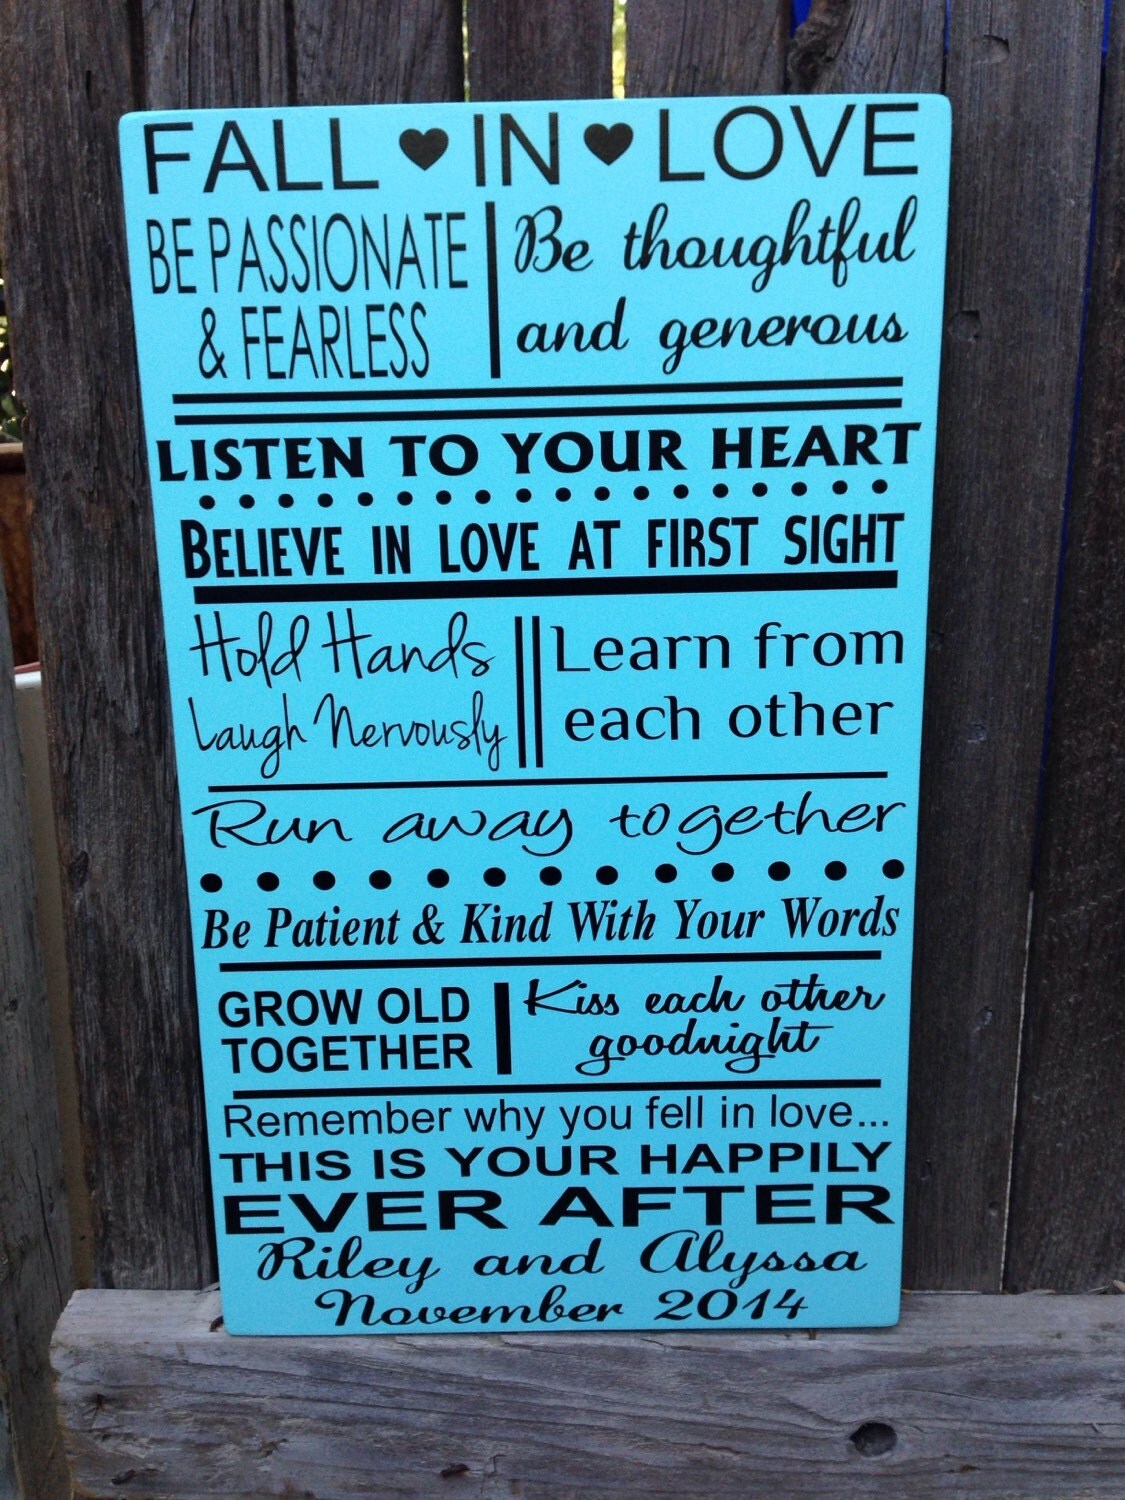 FALL ♥ IN ♥ LOVE
BE PASSIONATE
& FEARLESS
Be thoughtful
and generous
LISTEN TO YOUR HEART
BELIEVE IN LOVE AT FIRST SIGHT
Hold Hands
Laugh Nervously
Learn from
each other
Run away together
Be Patient & Kind With Your Words
GROW OLD
TOGETHER
Kiss each other
goodnight
Remember why you fell in love...
THIS IS YOUR HAPPILY
EVER AFTER
Riley and Alyssa
November 2014